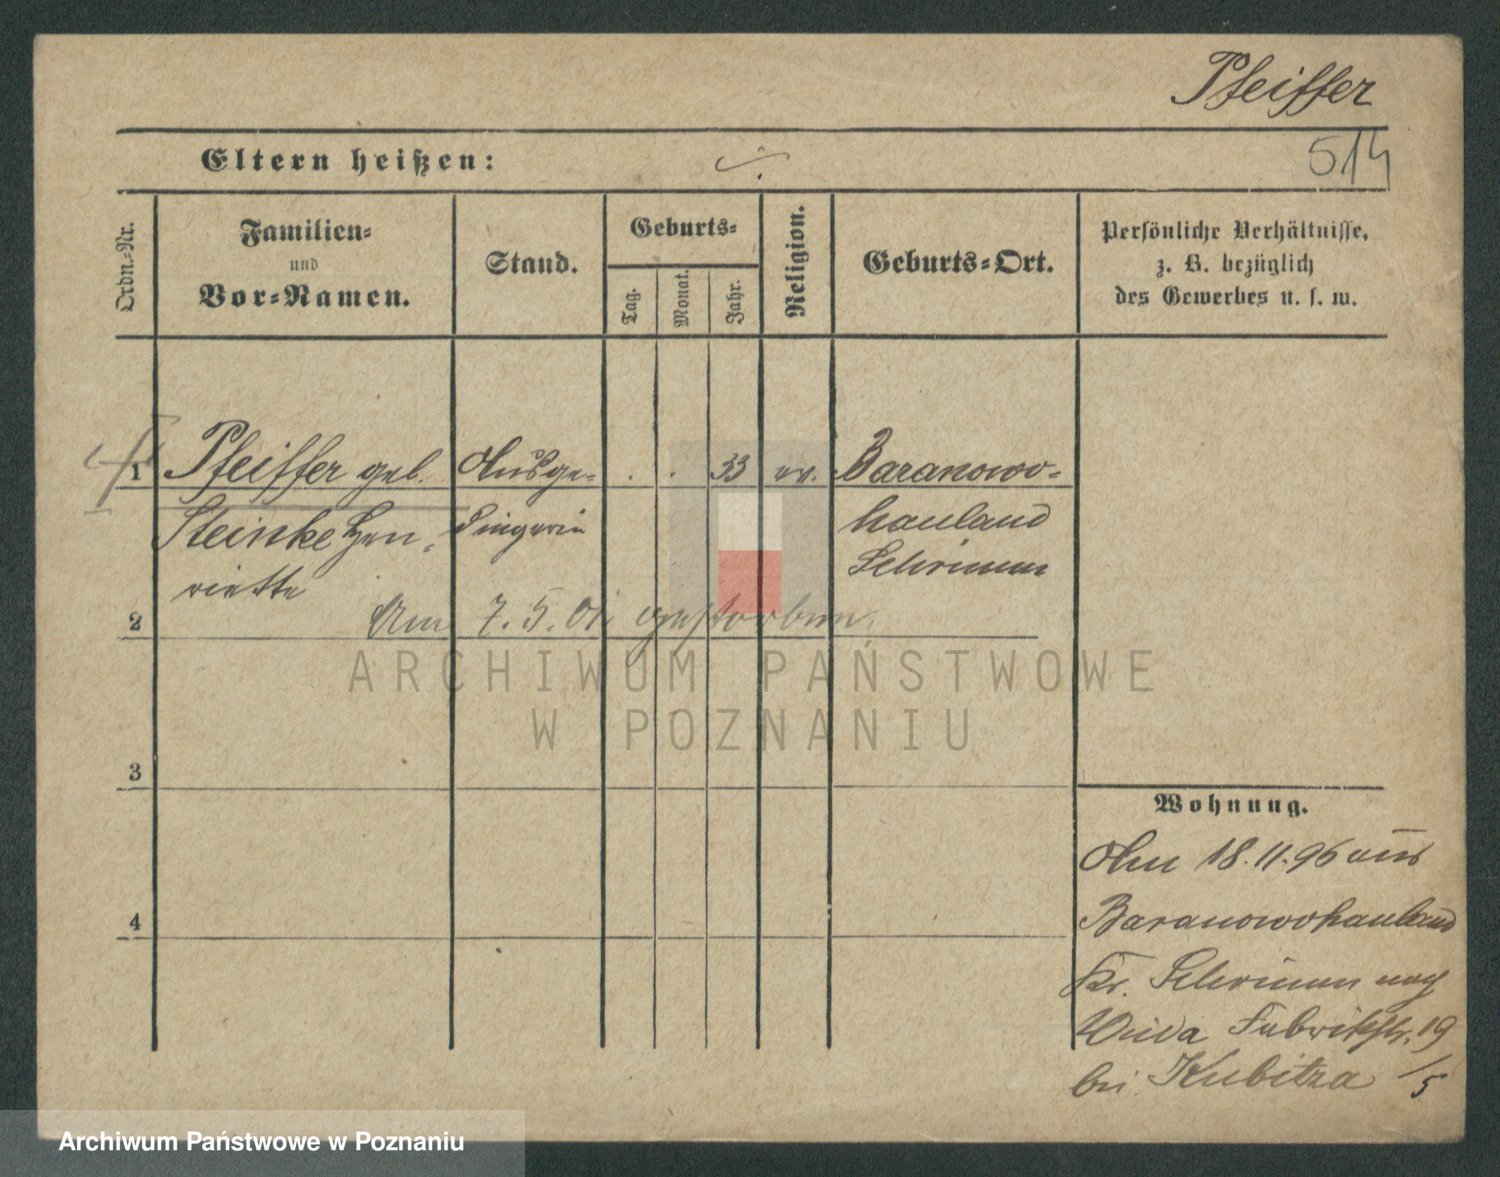 Pfeiffer
514
Eltern heißen: ./.
Ordn.-Nr.
Familien-
und
Vor-Namen.
Stand.
Geburts-
Tag.
Monat.
Jahr.
Religion.
Geburts-Ort.
Persönliche Verhältnisse,
z. B. bezüglich
des Gewerbes u. s. w.
1 Pfeiffer geb. Ausge- . . 33 ev. Baranowo-
Steinke Hen- dingerin hauland
riette Schrimm
2 Am 7. 5. 01 gestorben.
3
4
Wohnung.
Am 18.11.96 aus
Baranowohauland
Kr. Schrimm nach
Wilda Fabrikstr. 19
bei Kubitza /5
ARCHIWUM PAŃSTWOWE
W POZNANIU
Archiwum Państwowe w Poznaniu